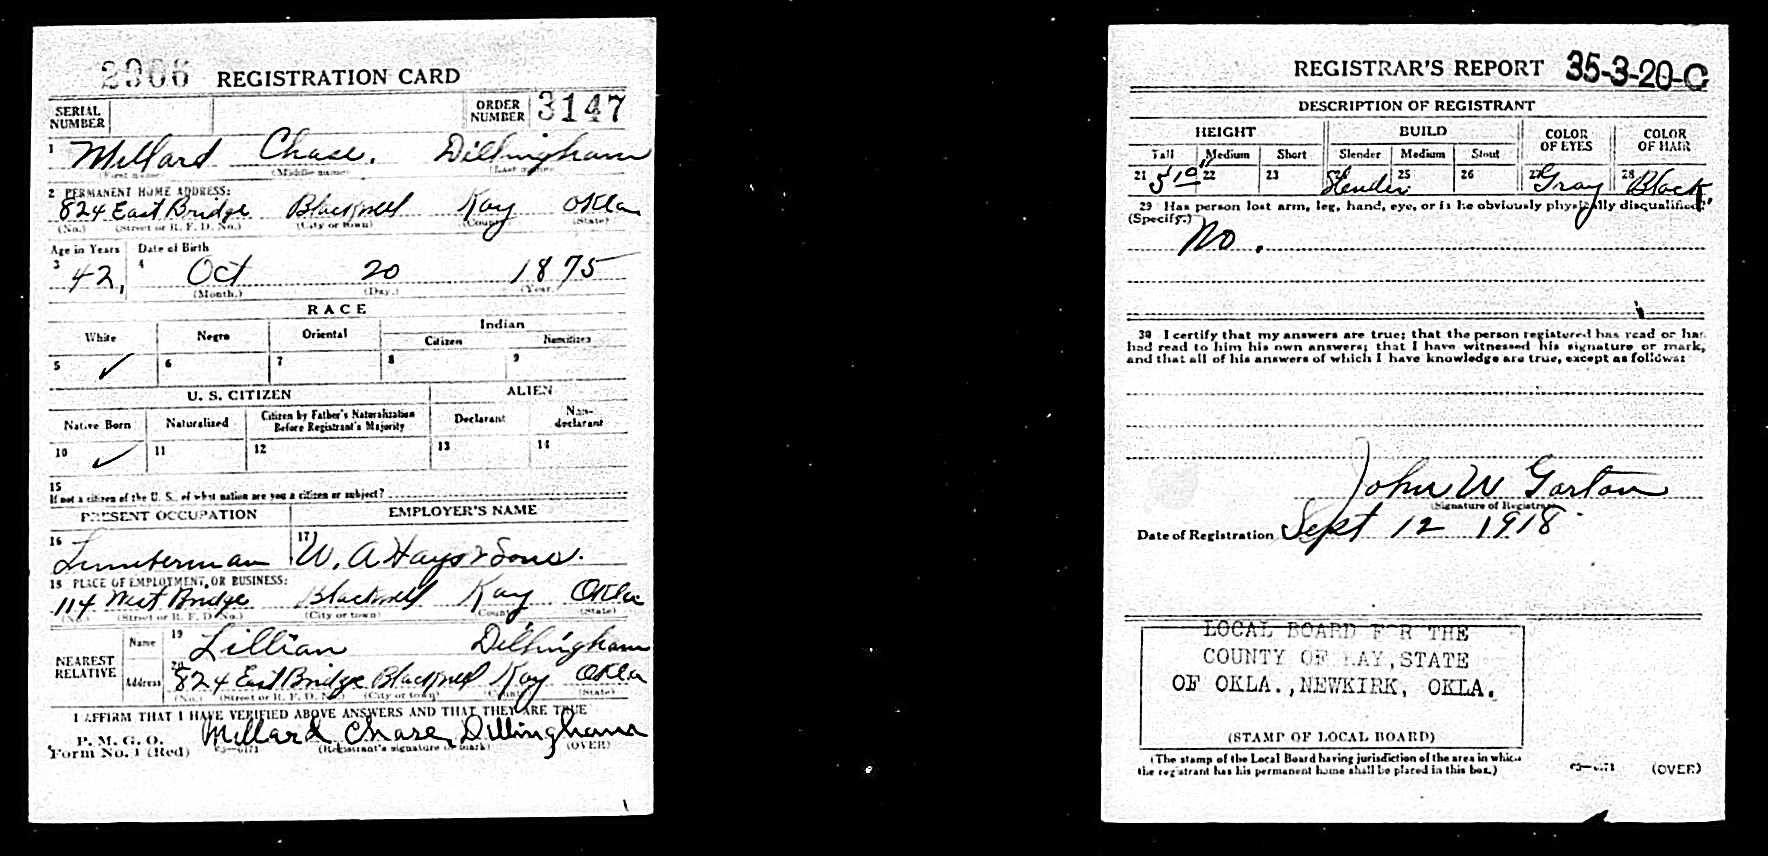 2906 REGISTRATION CARD
SERIAL NUMBER ORDER NUMBER 3147
1 Millard Chase. Dillingham
(First name) (Middle name) (Last name)
2 PERMANENT HOME ADDRESS:
824 East Bridge Blackwell Kay Okla
(No.) (Street or R. F. D. No.) (City or town) (County) (State)
Age in Years Date of Birth
3 42, 4 Oct 20 1875
(Month.) (Day.) (Year.)
RACE
White Negro Oriental Indian
Citizen Noncitizen
5 ✓ 6 7 8 9
U. S. CITIZEN ALIEN
Native Born Naturalized Citizen by Father's Naturalization Before Registrant's Majority Declarant Non-declarant
10 ✓ 11 12 13 14
15
If not a citizen of the U. S., of what nation are you a citizen or subject?
PRESENT OCCUPATION EMPLOYER'S NAME
16 Lumberman 17 W. A Hays & Sons.
18 PLACE OF EMPLOYMENT, OR BUSINESS:
114 West Bridge Blackwell Kay Okla
(No.) (Street or R. F. D. No.) (City or town) (County) (State)
NEAREST RELATIVE Name 19 Lillian Dillingham
Address 20 824 East Bridge Blackwell Kay Okla
(No.) (Street or R. F. D. No.) (City or town) (County) (State)
I AFFIRM THAT I HAVE VERIFIED ABOVE ANSWERS AND THAT THEY ARE TRUE
P. M. G. O.
Form No. 1 (Red) Millard Chase Dillingham
03—6171 (Registrant's signature or mark) (OVER)
REGISTRAR'S REPORT 35-3-20-C
DESCRIPTION OF REGISTRANT
HEIGHT BUILD COLOR OF EYES COLOR OF HAIR
Tall Medium Short Slender Medium Stout
21 5'10" 22 23 24 Slender 25 26 27 Gray 28 Black
29 Has person lost arm, leg, hand, eye, or is he obviously physically disqualified?
(Specify.)
No.
30 I certify that my answers are true; that the person registered has read or has
had read to him his own answers; that I have witnessed his signature or mark,
and that all of his answers of which I have knowledge are true, except as follows:
John W Gorton
(Signature of Registrar)
Date of Registration Sept 12 1918
LOCAL BOARD FOR THE
COUNTY OF KAY, STATE
OF OKLA., NEWKIRK, OKLA.
(STAMP OF LOCAL BOARD)
(The stamp of the Local Board having jurisdiction of the area in which
the registrant has his permanent home shall be placed in this box.)
03—6171 (OVER)